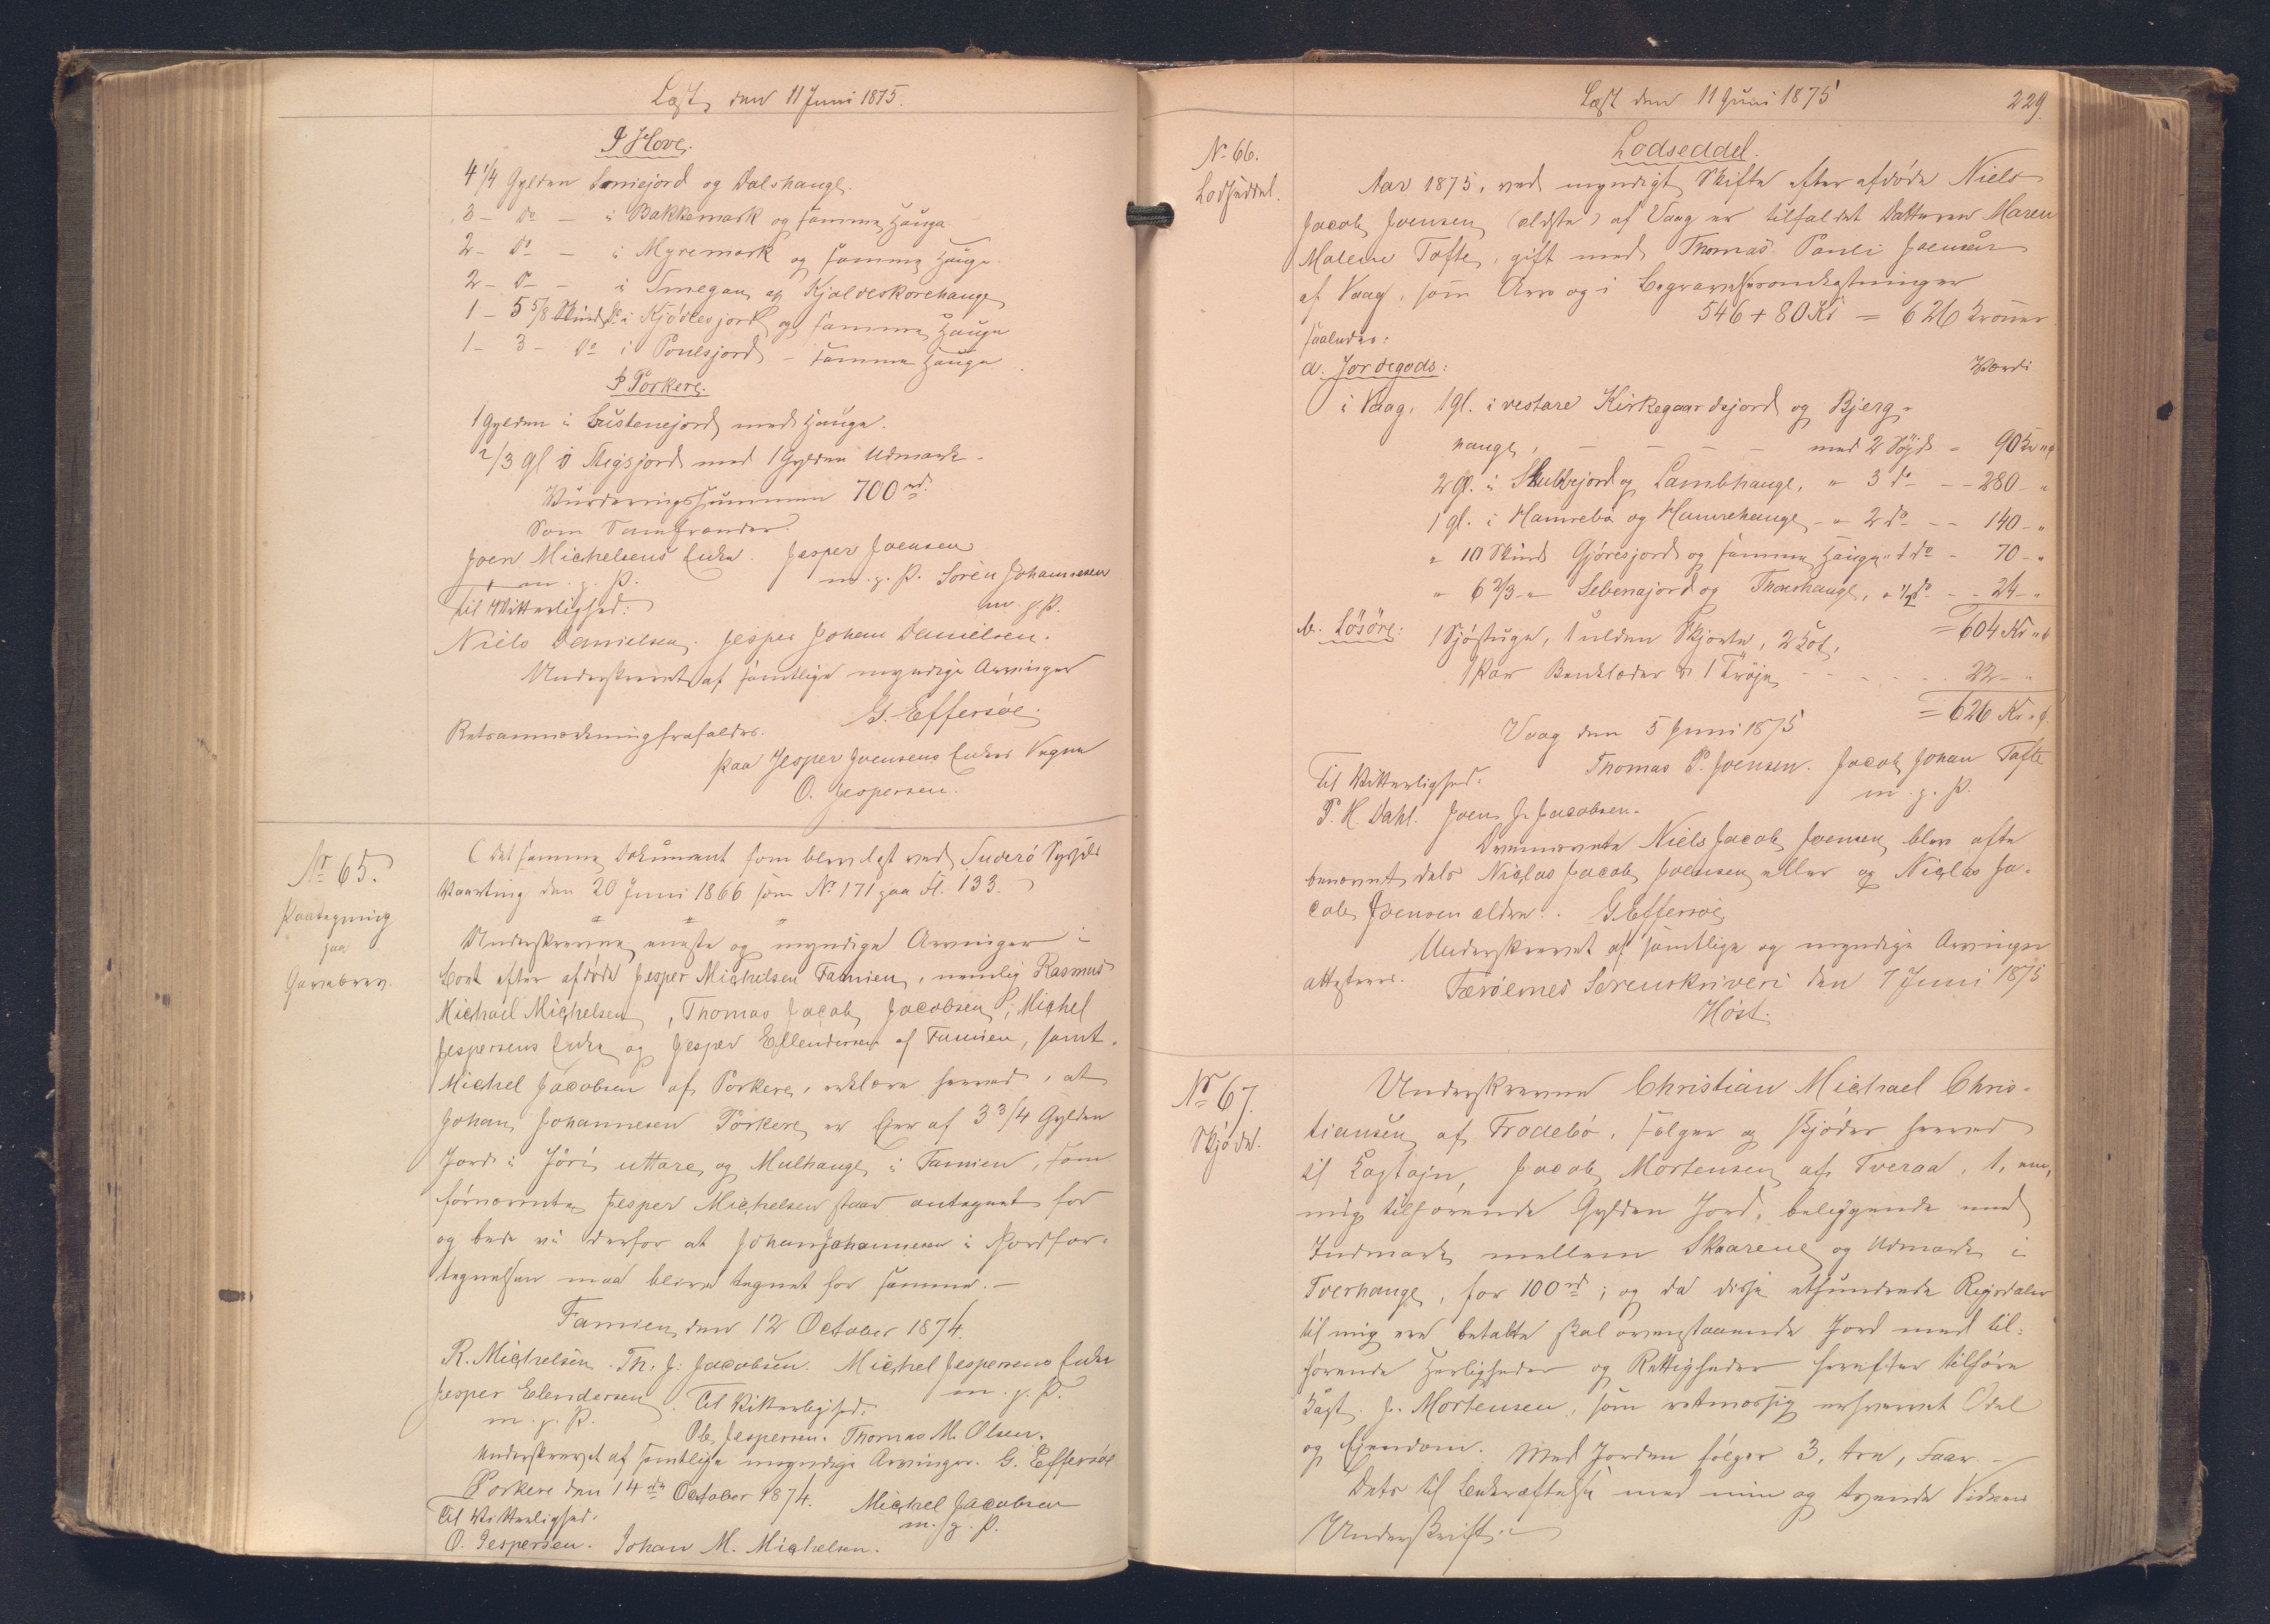 Læst den 11 Juni 1875.
I Hove.
4 1/4 Gylden Soniejord og Dalshauge.
3 - do - i Bakkemark og samme Hauga
2 - do - i Myremark og samme Hauge.
2 - do - i Smegan og Kjaldeskorehauge
1 - 5 5/8 Skind do i Kjödlesjord og samme Hauge
1 - 3 - do i Poulsjord - samme Hauge
I Porkere.
1 Gylden i Lustenejord med Hauge.
2/3 gl i Stegsjord med 1 Gylden Udmark -
Vurderingssummen 700 rd.
Som Samfrænder.
Joen Michelsens Enke. Jesper Joensen
m. g. P. m. g. P. Sören Johannesen
Til Vitterlighed: m. g. P.
Niels Danielsen. Jesper Johan Danielsen.
Underskrevet af samtlige myndige Arvinger
G. Effersöe.
Retsanmærkning frafaldes.
paa Jesper Joensens Enkes Vegne
O. Jespersen.
No 65.
Paategning
paa
Gavebrev.
(Det samme Dokument som blev læst ved Suderö Syssels
Vaarting den 20 Juni 1866 som No 171 paa Fl. 133.)
Underskrevne eneste og myndige Arvinger i
Boet efter afdöde Jesper Michelsen Famien, nemlig Rasmus
Michael Michelsen, Thomas Jacob Jacobsen P, Michel
Jespersens Enke og Jesper Ellendersen af Famien, samt
Michel Jacobsen af Porkere, erklære herved, at
Johan Johannesen Porkere er Eier af 3 3/4 Gylden
Jord i Jöri uttare og Mulhauge i Famien, som
fornævnte Jesper Michelsen staar antegnet for
og bede vi derfor at Johan Johannesen i Jordfor-
tegnelsen maa blive tegnet for samme. -
Famien, den 12 October 1874.
R. Michelsen. Th. J. Jacobsen. Michel Jespersens Enke
Jesper Elendersen. Til Vitterlighed. m. g. P.
m. g. P. Ole Jespersen. Thomas M. Olsen.
Underskrevet af samtlige myndige Arvinger. G. Effersöe
Porkere den 14de October 1874. Michel Jacobsen
Til Vitterlighed. m. g. P.
O. Jespersen. Johan M. Michelsen.
Læst den 11 Juni 1875
229.
No 66.
Lodseddel.
Lodseddel.
Aar 1875, ved myndigt Skifte efter afdöde Niels
Jacob Joensen (ældste) af Vaag er tilfaldet Datteren Maren
Malene Tofte, gift med Thomas Pauli Joensen
af Vaag, som Arv og i Begravelsesomkostninger
546 + 80 Kr = 626 Kroner
saaledes:
a. Jordegods: Værdi
i Vaag, 1 gl. i vestare Kirkegaardsjord og Bjerg-
hauge, - - - - med 2 Höjd - 90 Kr "
2 gl. i Stubbejord og Lambhauge, " 3 do - - 280 - "
1 gl. i Hamrebö og Hamrehauge - " 2 do - - 140 - "
" 10 Skind Gjöresjord og samme Hauge " 1 do - 70 - "
" 6 2/3 - " Sebenajord og Thoershauge, " 1/2 do - - 24 - "
= 604 Kr "
b. Lösöre: 1 Sjöstuge, 1 ulden Skjorte, 2 Kot,
1 Par Benklæder & 1 Tröje - - - - 22 - "
= 626 Kr "
Vaag den 5 Juni 1875
Til Vitterlighed. Thomas P. Joensen. Jacob Johan Tofte
m. g. P.
P. H. Dahl. Joen J. Jacobsen.
Ovennævnte Niels Jacob Joensen blev ofte
benævnt dels Niclas Jacob Joensen eller og Niclas Ja-
cob Joensen ældre. G Effersöe
Underskrevet af samtlige og myndige Arvinger
attesteres. Færöernes Sorenskriveri den 7 Juni 1875
Höst.
No 67.
Skjöde.
Underskrevne Christian Michael Chris-
tiansen af Frodebö, sælger og skjöder herved
til Kaptajn, Jacob Mortensen af Tveraa, 1, en,
mig tilhörende Gylden Jord, beliggende med
Indmark mellem Skaarene og Udmark i
Tverhauge, for 100 rd; og da disse ethundrede Rigsdaler
til mig ere betalte skal ovenstaaende Jord med til-
hörende Herligheder og Rettigheder herefter tilhöre
Kapt. J. Mortensen, som retmæssig erhvervet Odel
og Ejendom. Med Jorden fölger 3, tre, Faar. -
Dets til Bekræftelse med min og tvende Vidners
Underskrift. -